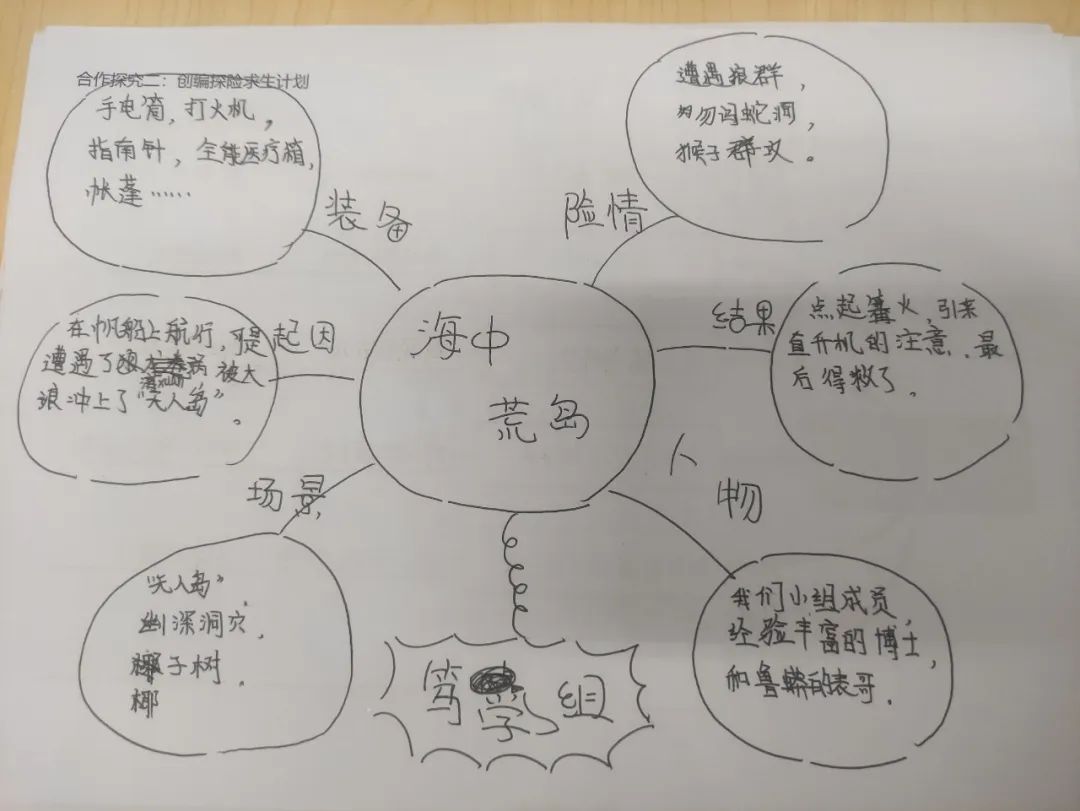 合作探究二：创编探险求生计划
手电筒，打火机，
指南针，全能医疗箱，
帐蓬……
装备
遭遇狼群，
勿闯蛇洞，
猴子群攻。
险情
在帆船上航行，可是
遭遇了 涡 被大
浪冲上了“无人岛”。
起因
海中
荒岛
结果
点起篝火，引来
直升机的注意，最
后得救了。
场景
“无人岛”，
幽深洞穴，
椰子树．
椰
人物
我们小组成员，
经验丰富的博士，
和鲁莽的表哥．
笃学组